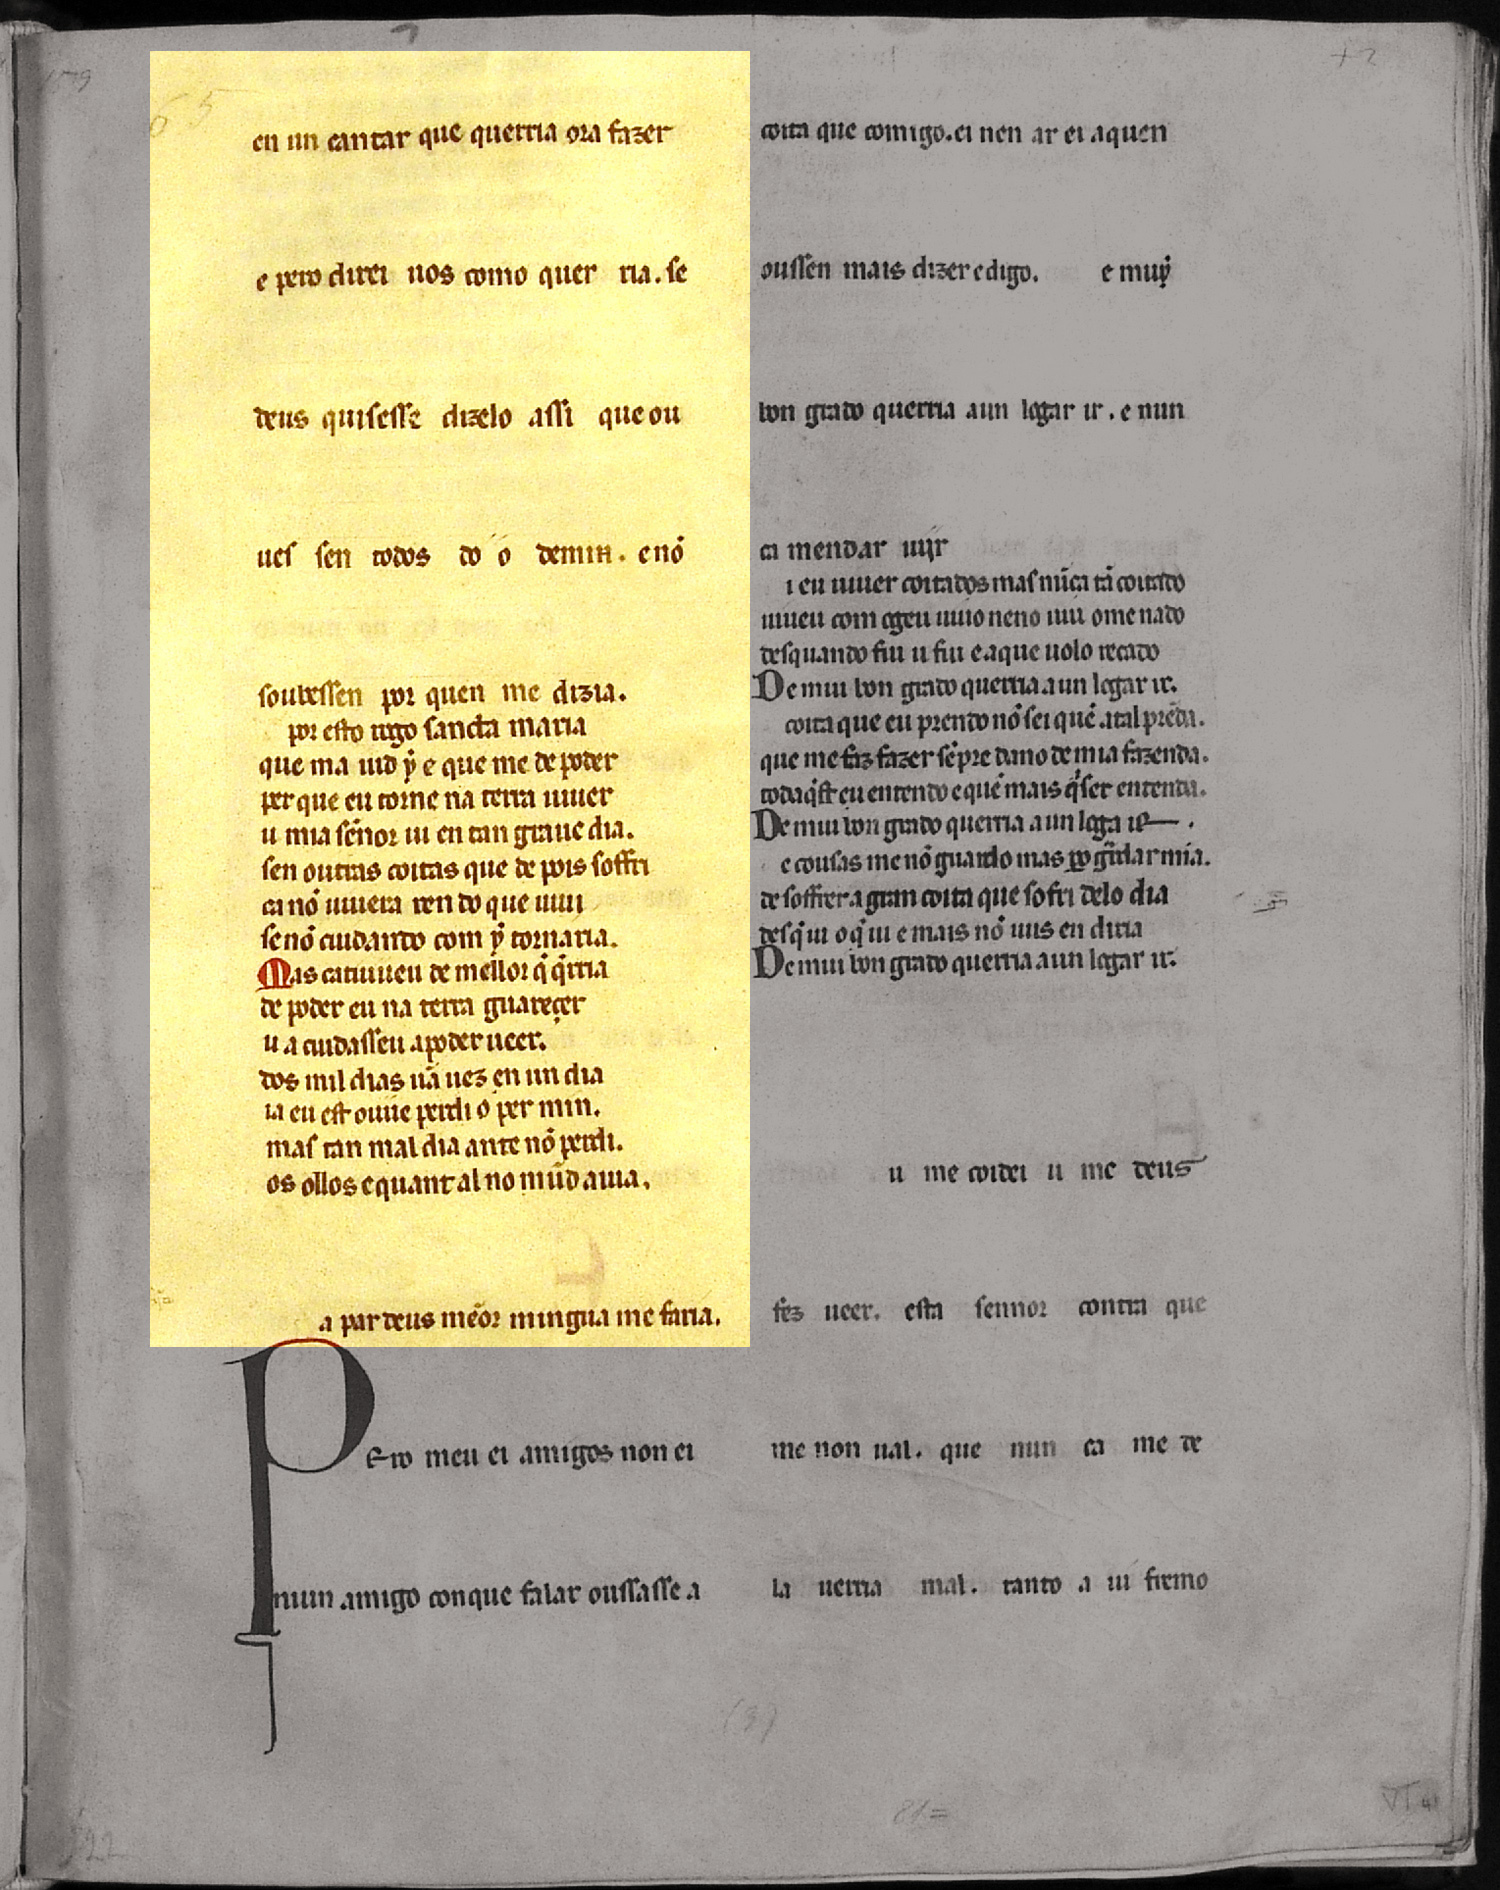 65
en un cantar que querria ora fazer
e pero direi uos como quer ria. se
deus quisesse dizelo assi que ou
ues sen todos do o demin. e nõ
soubessen por quen me dizia.
por esto rogo sancta maria
que ma uid ẏ e que me de poder
per que eu torne na terra uiuer
u mia sẽnor ui en tan graue dia.
sen outras coitas que de pois soffri
ca nõ uiuera ren do que uiui
se nõ cuidando com ẏ tornaria.
Mas catiuueu de mellor q̃ q̃rria
de poder eu na terra guareçer
u a cuidasseu a poder ueer.
dos mil dias uã uez en un dia
ia eu est ouue perdi o per min.
mas tan mal dia ante nõ perdi.
os ollos e quant al no mũd auia.
a par deus mẽor mingua me faria.
Pero meu ei amigos non ei
niun amigo con que falar oussasse a
coita que comigo. ei nen ar ei a quen
oussen mais dizer e digo. e muẏ
bon grado querria a un logar ir. e nun
ca mendar uijr
i eu uiuer coitados mas nũca tã coitado
uiueu com ogeu uiuo neno uiu ome nado
desquando fui u fui e aque uolo recado
De mui bon grado querria a un logar ir.
coita que eu prendo nõ sei quẽ atal prẽda.
que me faz fazer sẽpre dano de mia fazenda.
tod aq̃st eu entendo e quẽ mais q̃ser entenda.
De mui bon grado querria a un loga ir .
e cousas me nõ guardo mas
de soffrer a gran coita que sofri delo dia
des q̃ ui o q̃ ui e mais nõ uus en diria
De mui bon grado querria a un logar ir.
u me coidei u me deus
fez ueer. esta sennor contra que
me non ual. que nun ca me de
la uerria mal. tanto a ui fremo